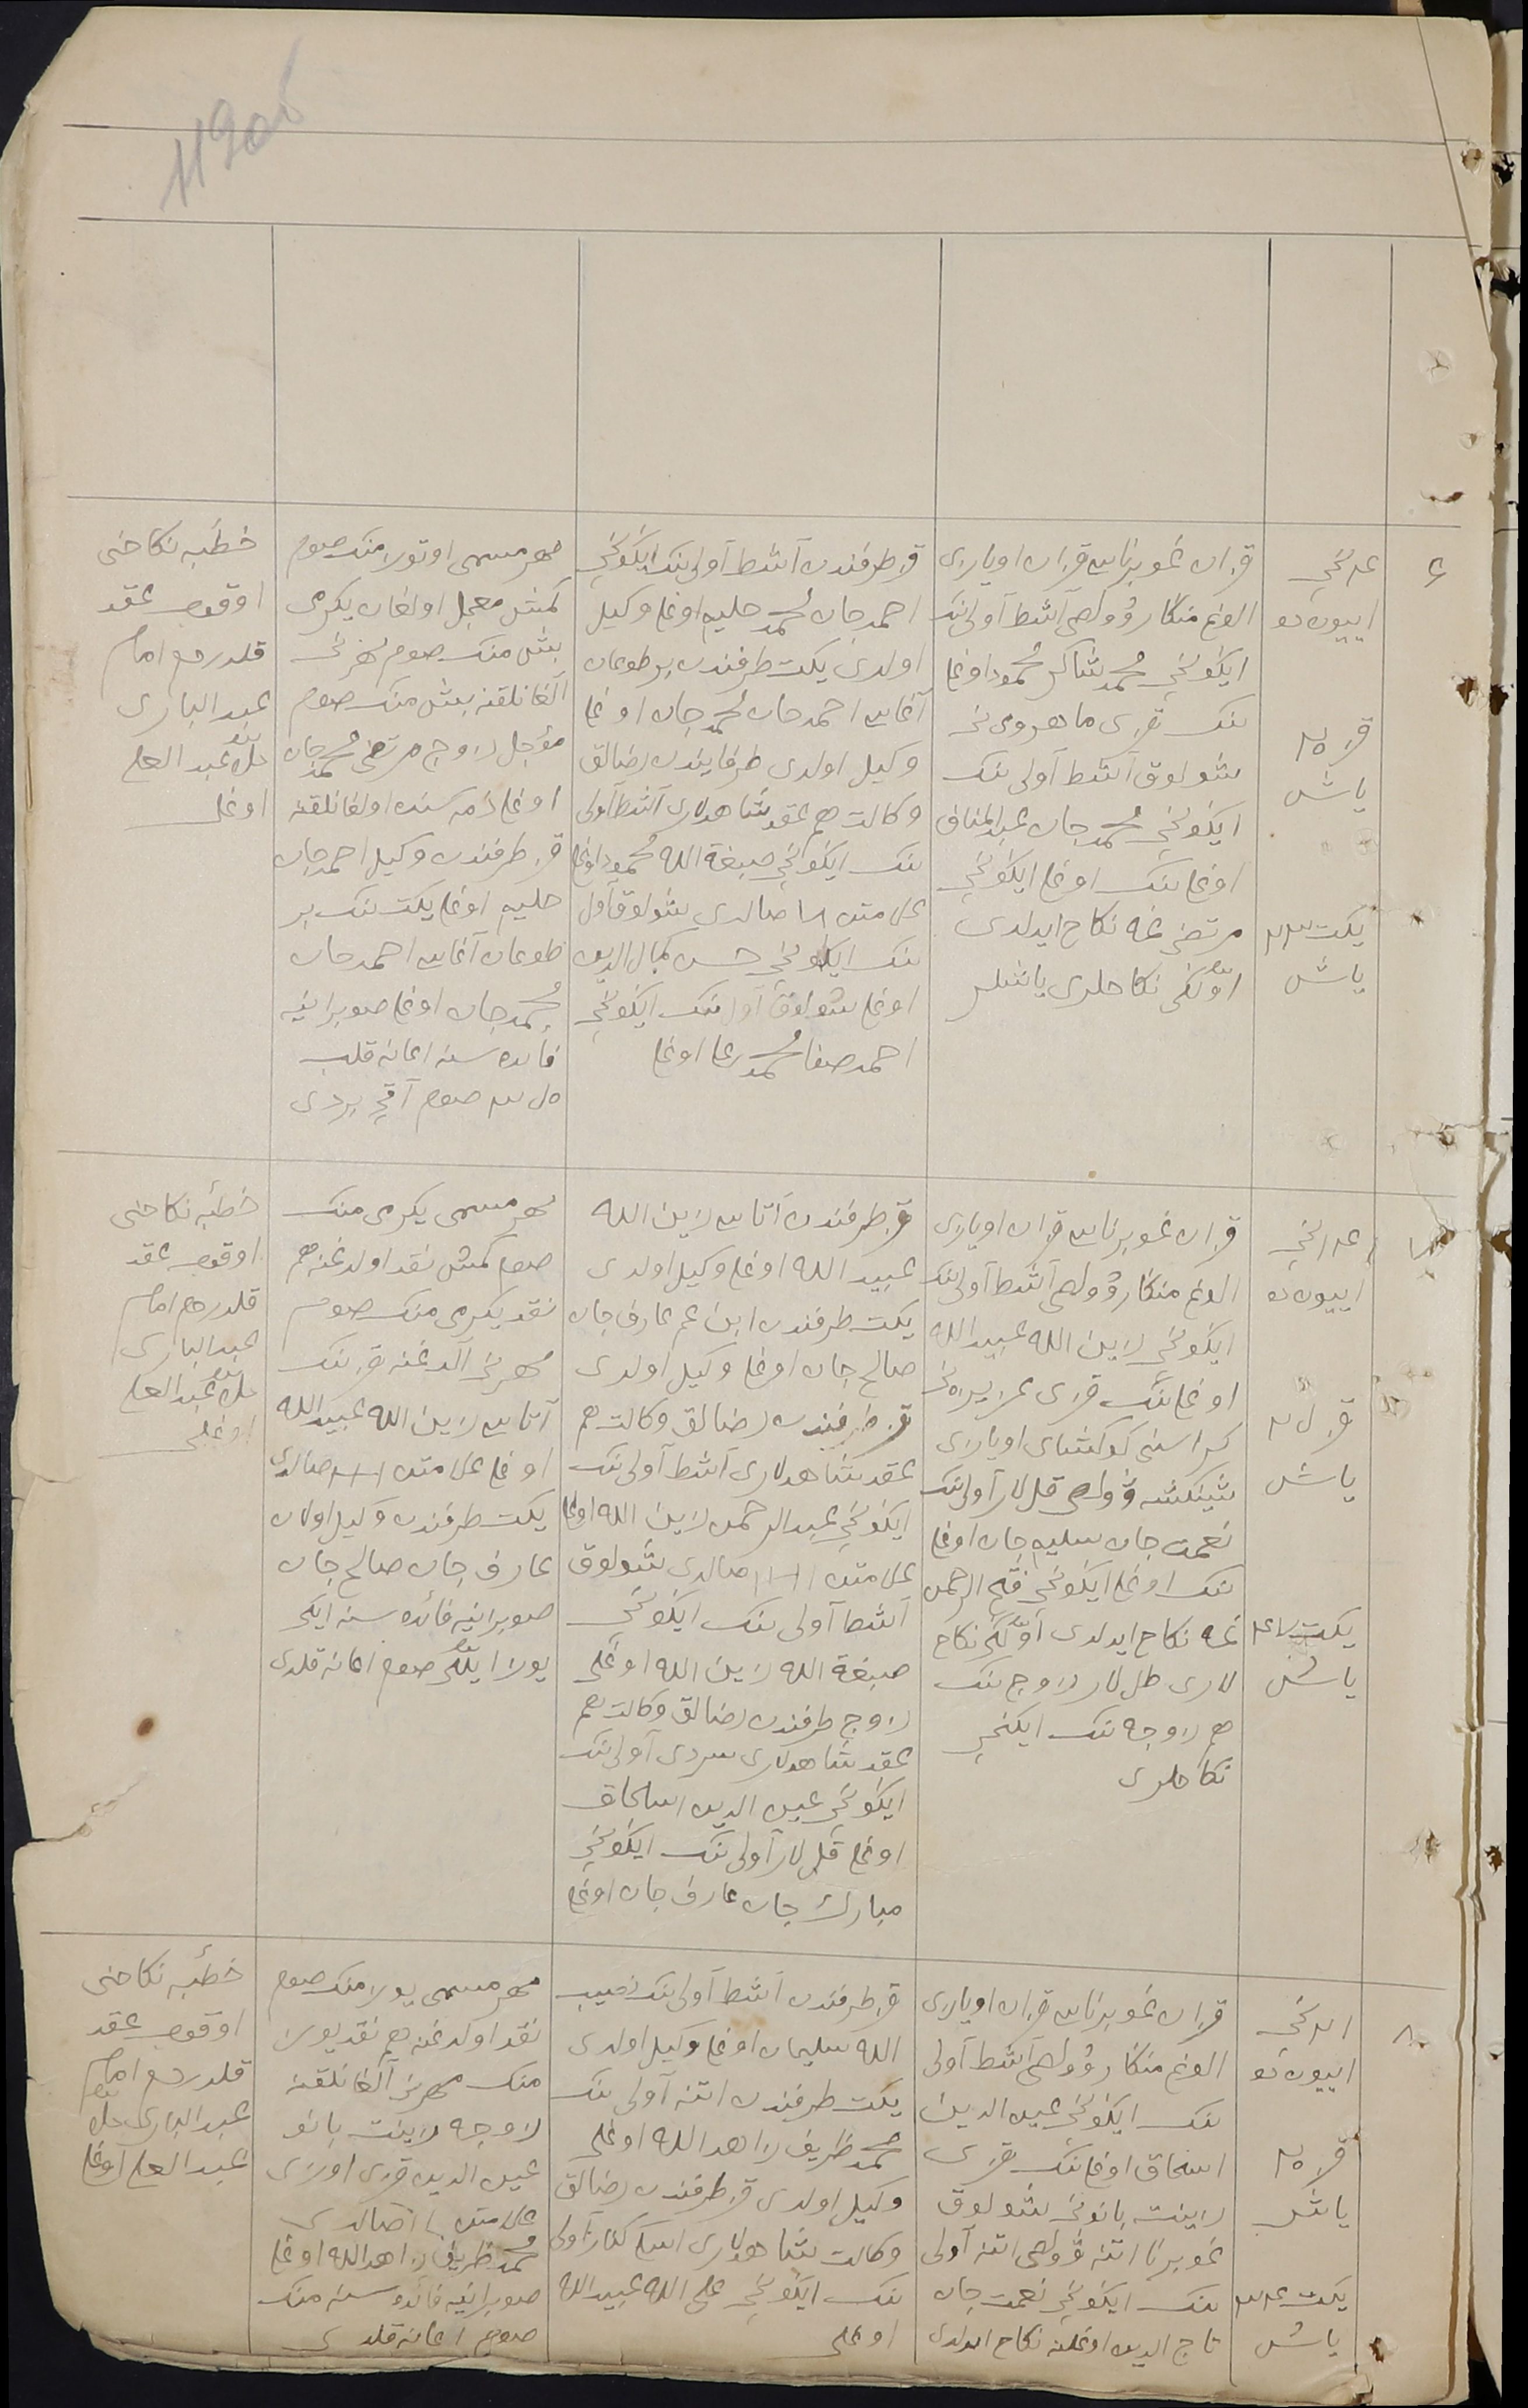 119об
۶
ایيون ده
قز ۲۵
یاش
یکت ۲۳
یاش
قزان غوبرناسی قزان اویازی
الوغ منکار وولصی آشط آولی ننک
ایکونچی محمد شاکر محمود اوغلی
ننک قزی ماهروی نی
شولوق آشط آولی ننک
ایکونچی محمد جان عبدالمناف
اوغلی ننک اوغلی ایکونچی
مرتضی غه نکاح ایدلدی
اولگی نکاحلری یاشلر
قز طرفندن آشط آولی ننک ایکونچی
احمد جان محمد حلیم اوغلی وکیل
اولدی یکت طرفندن بر طوغان
آغاسی احمد جان محمد جان اوغلی
وکیل اولدی طرفایندن رضالق
وکالت هم عقد شاهدلاری آشط آولی
ننک ایکونچی صبغة الله محمود اوغلی
علامتن صالدی شولوق آول
ننک ایکونچی حسن کمال الدین
اوغلی شولوق آول ننک ایکونچی
احمد صفا محمد اوغلی
مهر مسمی اوتوز منک صوم
کمش معجل اولغان یکرمی
بیش منک صوم مهر نی
آلغانلقنه بیش منک صوم
مؤجل زوج مرتضی محمد جان
اوغلی ذمه سنده اولغانلقنه
قز طرفندن وکیل احمد جان
حلیم اوغلی یکت ننک بر
طوغان آغاسی احمد جان
محمد جان اوغلی صوبرانیه
فائده سنه اعانه قلب
صوم آقچه بردی
خطبه نکاحنی
اوقوب عقد
قلدردم امام
عبد الباری
ملا عبد العلی
اوغلی
۷
ایيون ده
قز
یاش
یکت
یاش
قزان غوبرناسی قزان اویازی
الوغ منکار وولصی آشط آولی ننک
ایکونچی زین الله عبید الله
اوغلی ننک قزی عزیزه نی
کراسنی کوکشای اویازی
شینکشه وولصی قل لار آولی ننک
نعمت جان سلیم جان اوغلی
ننک اوغلی ایکونچی فتح الرحمن
غه نکاح ایدلدی اولگی نکاح
لاری طل لار زوج ننک
هم زوجه ننک ایکنچی
نکاحلری
قز طرفندن آتاسی زین الله
عبید الله اوغلی وکیل اولدی
یکت طرفندن ابن عم عارف جان
صالح جان اوغلی وکیل اولدی
قز طرفندن رضالق وکالت هم
عقد شاهدلاری آشط آولی ننک
ایکونچی عبد الرحمن زین الله اوغلی
علامتن صالدی شولوق
آشط آولی ننک ایکونچی
صبغة الله زین الله اوغلی
زوج طرفندن رضالق وکالت هم
عقد شاهدلاری سردی آولی ننک
ایکونچی عین الدین اسحاق
اوغلی قل لار آولی ننک ایکونچی
مبارک جان عارف جان اوغلی
مهر مسمی یکرمی منک
صوم کمش نقد اولدغنه هم
نقد یکرمی منک صوم
مهر نی آلدغنه قز ننک
آتاسی زین الله عبید الله
اوغلی علامتن صالدی
یکت طرفندن وکیل اولان
عارف جان صالح جان
صوبرانیه فائده سنه ایکی
یوز ایللی صوم اعانه قلدی
خطبه نکاحنی
اوقوب عقد
قلدردم امام
عبد الباری
ملا عبد العلی
اوغلی
۸
ایيون ده
قز ۲۵
یاش
یکت
یاش
قزان غوبرناسی قزان اویازی
الوغ منکار وولصی آشط آولی
ننک ایکونچی عین الدین
اسحاق اوغلی ننک قزی
زینت بانو نی شولوق
غوبرنا اتنه وولصی اتنه آولی
ننک ایکونچی نعمت جان
تاج الدین اوغلینه نکاح ایدلدی
قز طرفندن آشط آولی ننک نصیب
الله سلیمان اوغلی وکیل اولدی
یکت طرفندن اتنه آولی ننک
محمد ظریف زاهد الله اوغلی
وکیل اولدی قز طرفندن رضالق
وکالت شاهدلاری آولی
ننک ایکونچی عبید الله
اوغلی
مهر مسمی یوز منک صوم
نقد اولدغنه هم نقد یوز
منک مهر نی آلغانلقنه
زوجه زینت بانو
عین الدین قزی اوزی
علامتن صالدی
محمد ظریف زاهد الله اوغلی
صوبرانیه فائده سنه منک
صوم اعانه قلدی
خطبه نکاحنی
اوقوب عقد
قلدردم امام
عبد الباری ملا
عبد العلی اوغلی